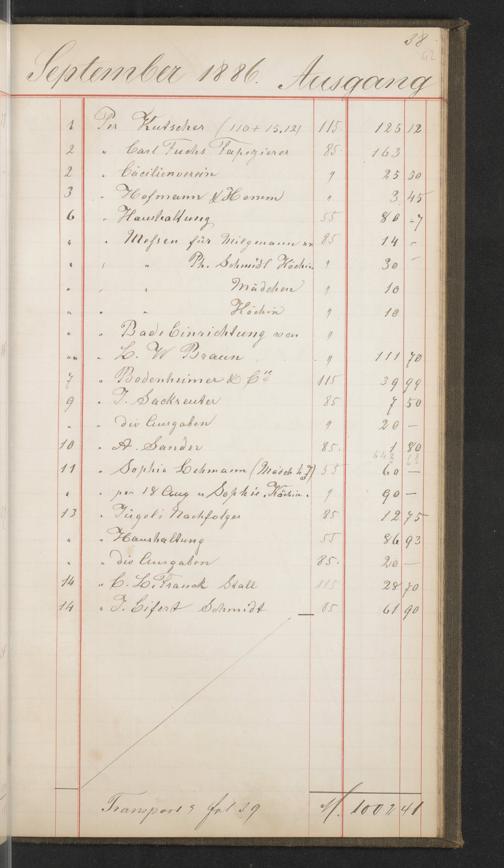 38
62
September 1886. Ausgang
1 Per Kutscher (110 + 15.12) 115 125 12
2 " Carl Fuchs Tapezierer 85 163
2 " Cäcilienverein " 25 30
3 " Hofmann & " 3 45
6 " Haushaltung 55 80 -7
" " für 85 14 -
" " " Ph. Schmidt Köchin " 30 -
" " " Mädchen " 10
" " " Köchin " 10
" " Bade Einrichtung von "
" " L. W Braun " 111 70
7 " Bodenheimer & Cie 115 39 99
9 " J. Sackreuter 85 7 50
" " div Ausgaben " 20 —
10 " A. Sander 85 1 80
11 " Sophie Lehmann 55 60 —
" " per 18 Aug " Sophie, Köchin. " 90 —
13 " Jügel's Nachfolger 85 12 75
" " Haushaltung 55 86 93
" " div Ausgaben 85 20 —
14 " C. L. Franck Stall 115 28 70
14 " J. Eifert Schmidt 85 61 90
Transport fol 39 M. 1002 41